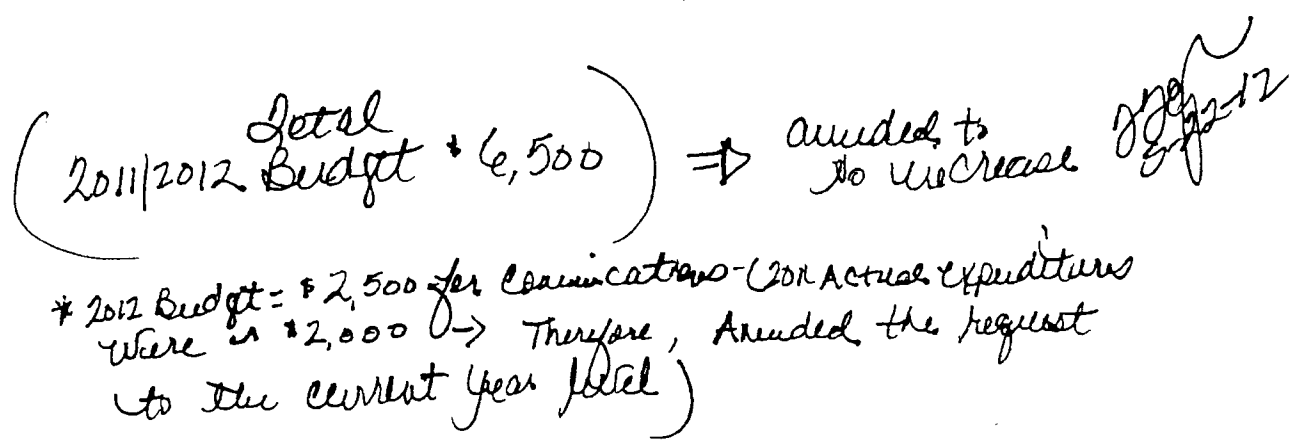 Total
2011/2012 Budget $6,500 ⇒ amended to
to increase
5-22-12
* 2012 Budget = $2,500 for Communications - (2011 Actual expenditures
were $2,000 -> Therefore, Amended the request
to the current year level)